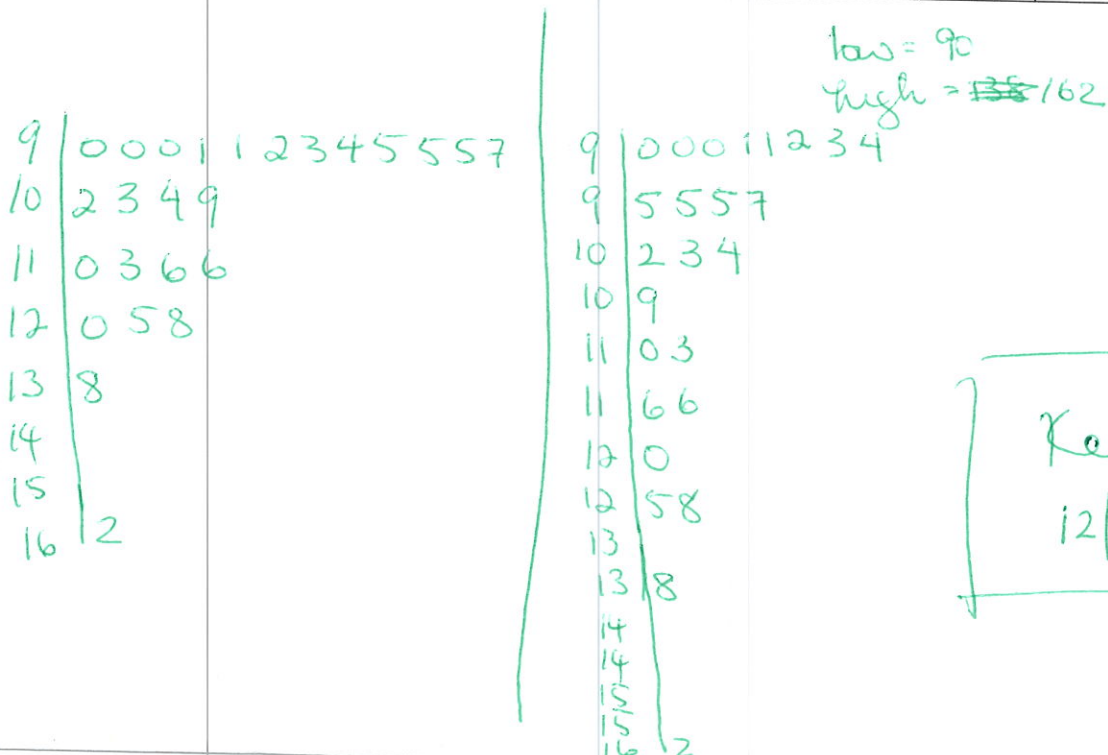 low = 90
high = 138 162
9 | 0 0 0 1 1 2 3 4 5 5 5 7
10 | 2 3 4 9
11 | 0 3 6 6
12 | 0 5 8
13 | 8
14 |
15 |
16 | 2
9 | 0 0 0 1 1 2 3 4
9 | 5 5 5 7
10 | 2 3 4
10 | 9
11 | 0 3
11 | 6 6
12 | 0
12 | 5 8
13 |
13 | 8
14 |
14 |
15 |
15 |
16 | 2
Ke
12 |